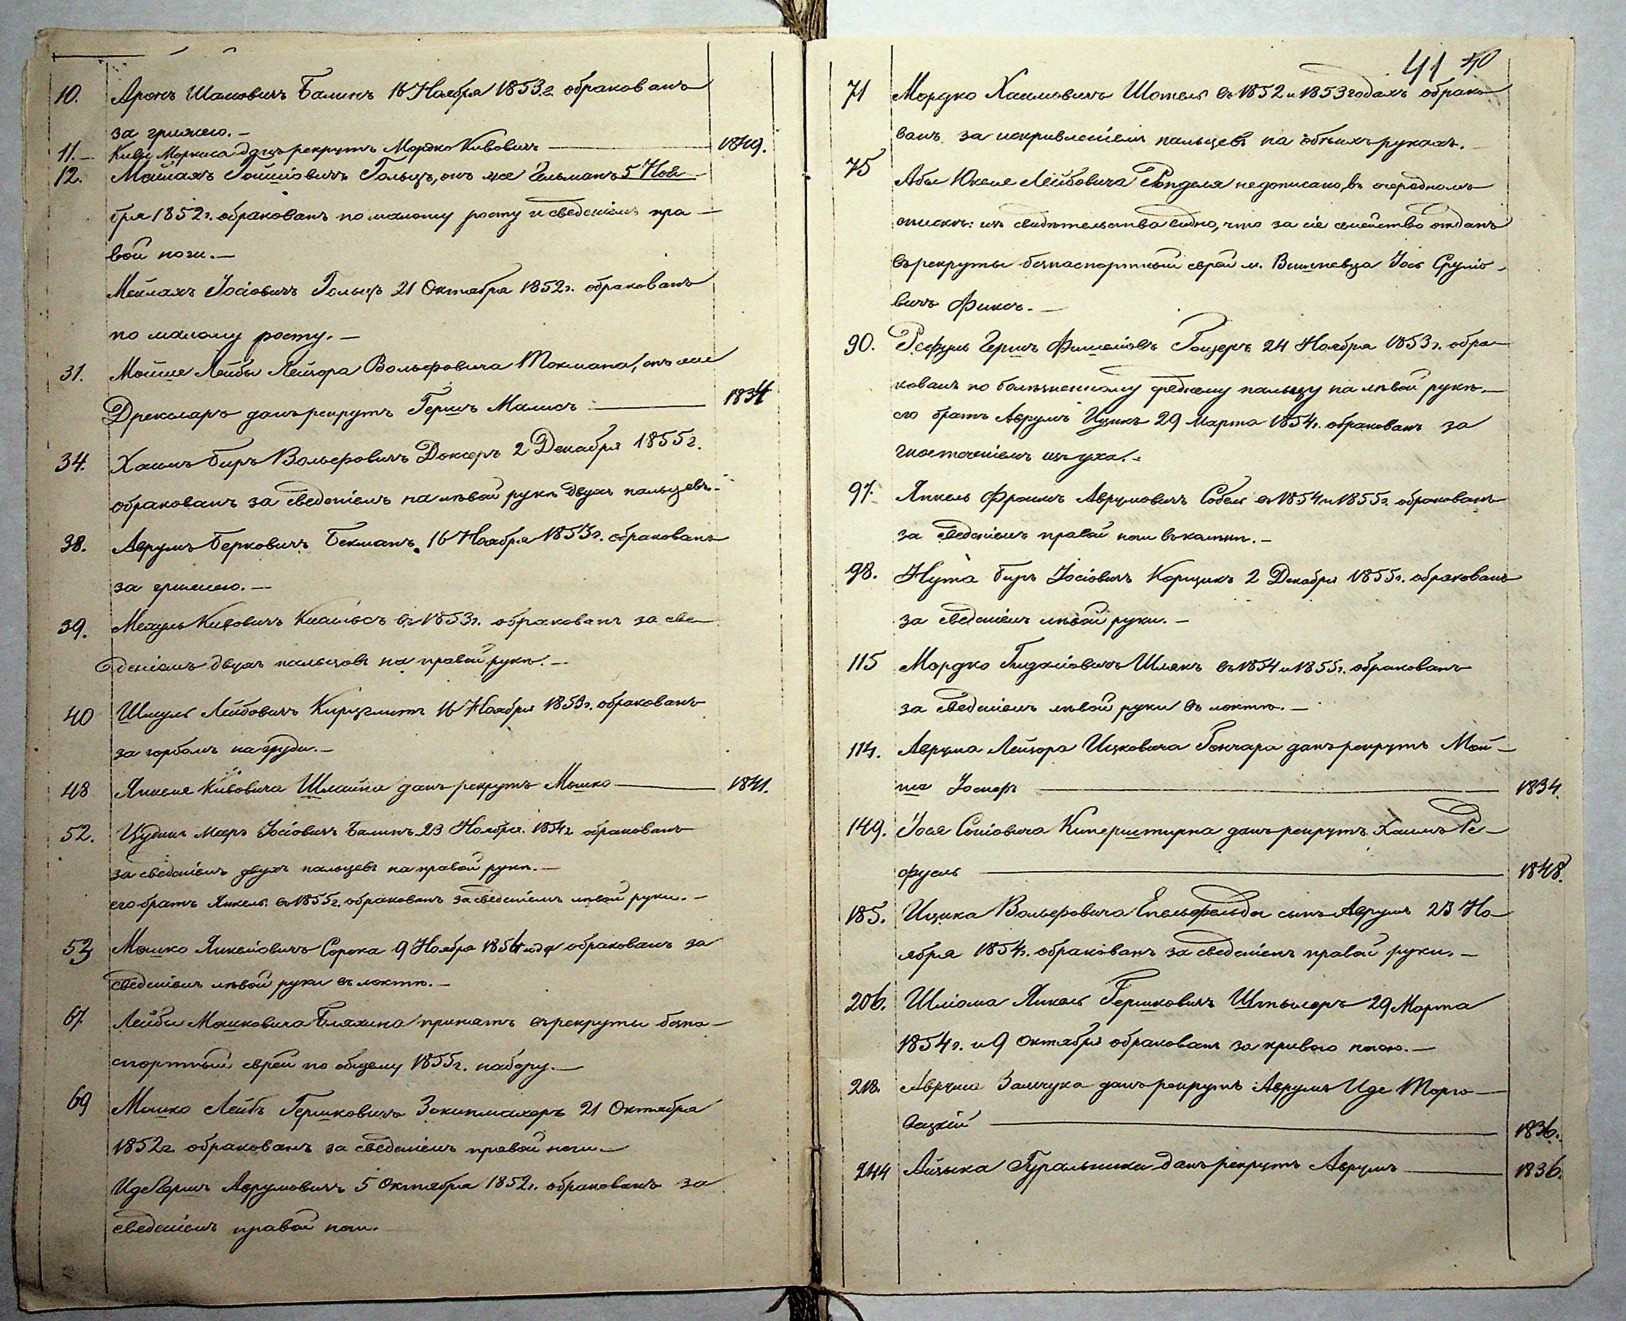 10. Аронъ Шаповичъ Балинъ 16 Ноября 1853 г. обракованъ
за грыжею. —
11. — Кивы Моркиса данъ рекрутъ Мордко Кивовичъ — 1849.
12. Мошлахъ Гольцъ, онъ же Гельманъ 5 Ноя-
бря 1852 г. обракованъ по малому росту и сведеніемъ пра-
вой ноги. —
Мейлахъ Іосіовичъ Гольцъ 21 Октября 1852 г. обракованъ
по малому росту. —
31. Мойше Лейбы Лейзора Вольфовича Токмана, онъ же
Дрекслеръ данъ рекрутъ Гершъ — 1834
34. Хаимъ Беръ Вольфовичъ Доксеръ 2 Декабря 1855 г.
обракованъ за сведеніемъ на лѣвой рукѣ двухъ пальцевъ. —
38. Аврумъ Берковичъ Бекманъ. 16 Ноября 1853 г. обракованъ
за грыжею. —
39. Кивовичъ въ 1853 г. обракованъ за све-
деніемъ двухъ пальцовъ на правой рукѣ. —
40 Шмуль Лейбовичъ 16 Ноября 1853 г. обракованъ
за горбомъ на груди. —
48 Янкеля Кивовича данъ рекрутъ Мошко — 1841.
52. Іосіовичъ Балинъ 23 Ноября 1854 г. обракованъ
за сведеніемъ двухъ пальцевъ на правой рукѣ. —
его братъ Янкель въ 1855 г. обракованъ за сведеніемъ лѣвой руки. —
53 Мошко Янкеліовичъ Сорока 9 Ноября 1854 года обракованъ за
сведеніемъ лѣвой руки въ локтѣ. —
67. Лейбы Мошковича Бляхина принятъ въ рекруты безпа-
спортный еврей по общему 1855 г. набору. —
69 Мошко Лейбъ Гершковичъ 21 Октября
1852 г. обракованъ за сведеніемъ правой ноги. —
Иде Гершъ Аврумовичъ 5 Октября 1852 г. обракованъ за
сведеніемъ правой ноги.
41 40
71 Мордко Хаимовичъ въ 1852 и 1853 годахъ обрако-
ванъ за искривленіемъ пальцевъ на обѣихъ рукахъ. —
75 Абы Юкеля Лейбовича недописано, въ очередномъ
спискѣ: изъ свидѣтельства видно, что за сіе семейство отданъ
въ рекруты безпаспортный еврей м. Вишневца Іось Сруліо-
вичъ Фиксъ. —
90. Гершъ Гощеръ 24 Ноября 1853 г. обра-
кованъ по болѣзненному среднему пальцу на лѣвой рукѣ. —
его братъ Аврумъ Ицикъ 29 Марта 1854 г. обракованъ за
гноетеченіемъ изъ уха. —
97. Янкель Фроимъ Аврумовичъ Собель въ 1854 и 1855 г. обракованъ
за сведеніемъ правой ноги въ колѣнѣ. —
98. Нута Беръ Іосіовичъ Корчикъ 2 Декабря 1855 г. обракованъ
за сведеніемъ лѣвой руки. —
115 Мордко Шлякъ въ 1854 и 1855 г. обракованъ
за сведеніемъ лѣвой руки въ локтѣ. —
114. Аврума Лейзора Ицковича Гончара данъ рекрутъ Мой-
ша — 1834.
149. Іося данъ рекрутъ Хаимъ Ре-
фуель — 1848.
185. Ицика Вольфовича Епельфельда сынъ Аврумъ 23 Но-
ября 1854 г. обракованъ за сведеніемъ правой руки. —
206. Шліома Янкель Гершковичъ 29 Марта
1854 г. и 9 Октября обракованъ за кривою ногою. —
218. Аврума данъ рекрутъ Аврумъ Иде Торго-
вецкій — 1836.
244 Айзыка Гуральника данъ рекрутъ Аврумъ — 1836.